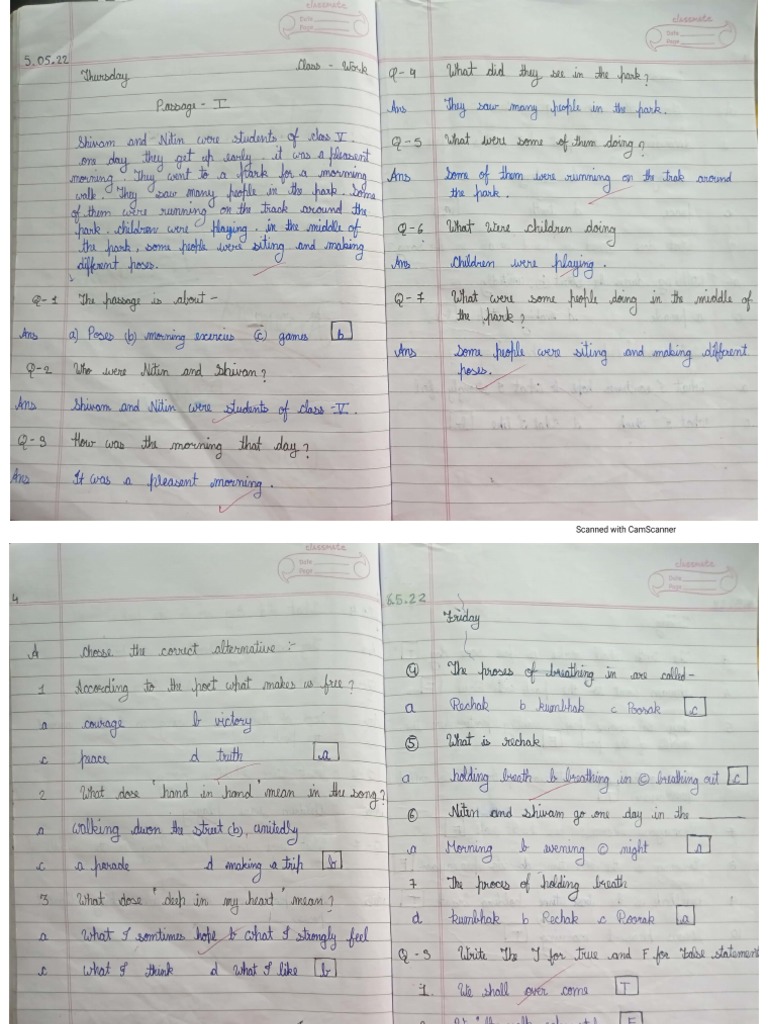 classmate
Date
Page
5.05.22
Thursday
Class - Work
Passage - I
Shivam and Nitin were students of class V.
one day they get up early. it was a pleasent
morning. They went to a park for a morning
walk. They saw many people in the park. Some
of them were running on the track around the
park. children were playing. in the middle of
the park, some people were siting and making
different poses.
Q-1 The passage is about -
Ans a) Poses (b) morning exercies (c) games b
Q-2 Who were Nitin and Shivam?
Ans Shivam and Nitin were students of class -V.
Q-3 How was the morning that day?
Ans It was a pleasent morning.
classmate
Date
Page
Q-4 What did they see in the park?
Ans They saw many people in the park.
Q-5 What were some of them doing?
Ans Some of them were running on the trak around
the park.
Q-6 What were children doing
Ans Children were playing.
Q-7 What were some people doing in the middle of
the park?
Ans Some people were siting and making different
poses.
Scanned with CamScanner
classmate
Date
Page
4
A choose the correct alternative :-
1 According to the poet what makes us free?
a courage b victory
c peace d truth a
2 What dose "hand in hand" mean in the song?
a walking dwon the street (b), unitedly
c a parade d making a trip b
3 What dose "deep in my heart" mean?
a What I somtimes hope b what I strongly feel
c what I think d what I like b
classmate
Date
Page
6.5.22
Friday
4 The proses of breathing in are called-
a Rechak b kumbhak c Poorak c
5 What is rechak
a holding breath b breathing in c breathing out c
6 Nitin and shivam go one day in the ______
a Morning b evening c night a
7 The proces of holding breath
d kumbhak b Rechak c Poorak a
Q-3 Write The T for true and F for False statement
1. We shall over come T
F